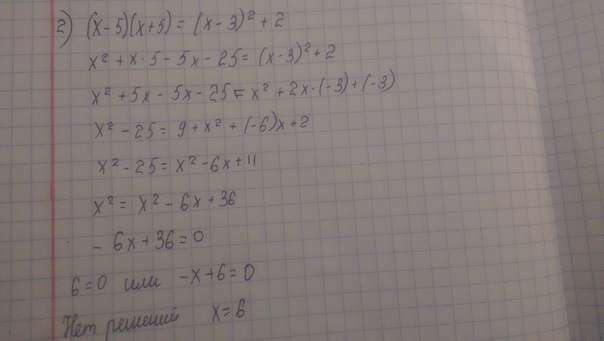 2) (x-5)(x+5) = (x-3)² + 2
x² + x·5 - 5x - 25 = (x-3)² + 2
x² + 5x - 5x - 25 = x² + 2x·(-3) + (-3)
x² - 25 = 9 + x² + (-6)x + 2
x² - 25 = x² - 6x + 11
x² = x² - 6x + 36
- 6x + 36 = 0
6 = 0 или -x + 6 = 0
Нет решений x = 6